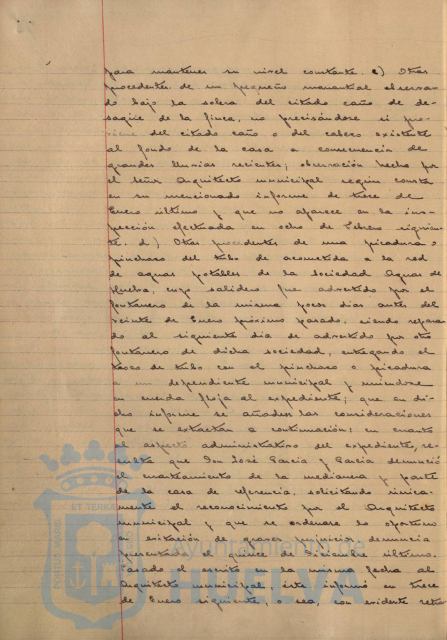 para mantener su nivel constante. c) Otras
procedentes de un pequeño manantial observa-
do bajo la solera del citado caño de de-
sagüe de la finca, no precisándose si pro-
viene del citado caño o del cabezo existente
al fondo de la casa a consecuencia de
grandes lluvias recientes; observación hecha por
el Señor Arquitecto municipal según consta
en su mencionado informe de trece de
Enero último y que no aparece en la ins-
pección efectuada en ocho de Febrero siguien-
te. d) Otras procedentes de una picadura o
pinchazo del tubo de acometida a la red
de aguas potables de la Sociedad Aguas de
Huelva, cuya salidero fue advertido por el
fontanero de la misma pocos dias antes del
veinte de Enero próximo pasado, siendo repara-
do al siguiente dia de advertido por otro
fontanero de dicha sociedad, entregando el
trozo de tubo con el pinchazo o picadura
a un dependiente municipal y uniendose
en cuerda floja al expediente; que en di-
cho informe se añaden las consideraciones
que se extractan a continuación: en cuanto
al aspecto administrativo del expediente, re-
sulta que Don José Garcia y Garcia denunció
el cuarteamiento de la medianera y parte
de la casa de referencia, solicitando única-
mente el reconocimiento por el Arquitecto
municipal y que se ordenare lo oportuno
en evitación de graves perjuicios, denuncia
presentada el quince de Diciembre último.
Pasado el escrito en la misma fecha al
Arquitecto municipal, éste informó en trece
de Enero siguiente, o sea, con evidente retra-
ET TERRAE
Ayuntamiento de
HUELVA